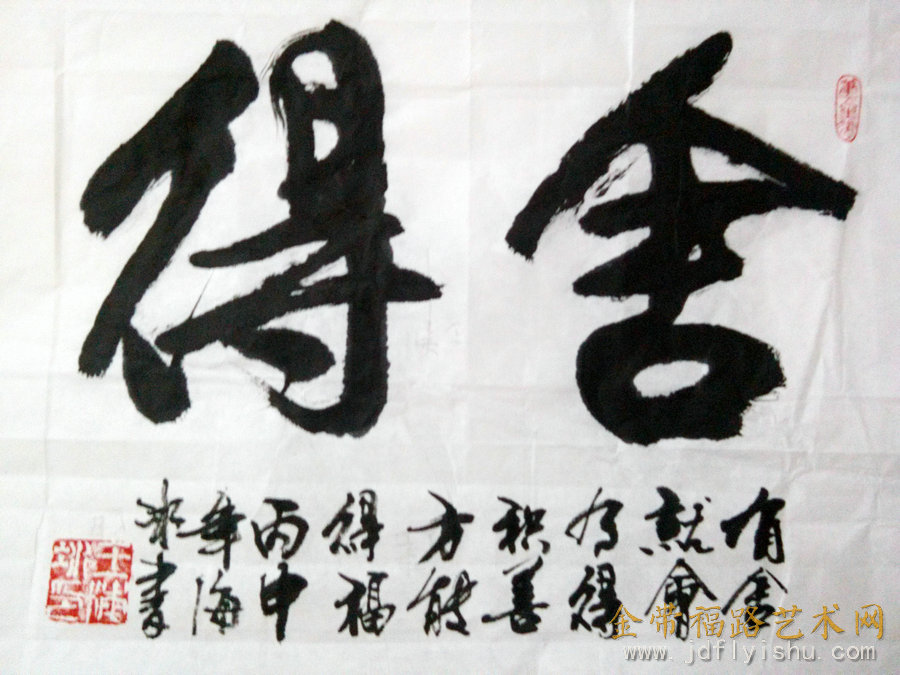 舍得
有舍
就會
有得
积善
方能
得福
丙申
年海
冰書
金带福路艺术网
www.jdflyishu.com